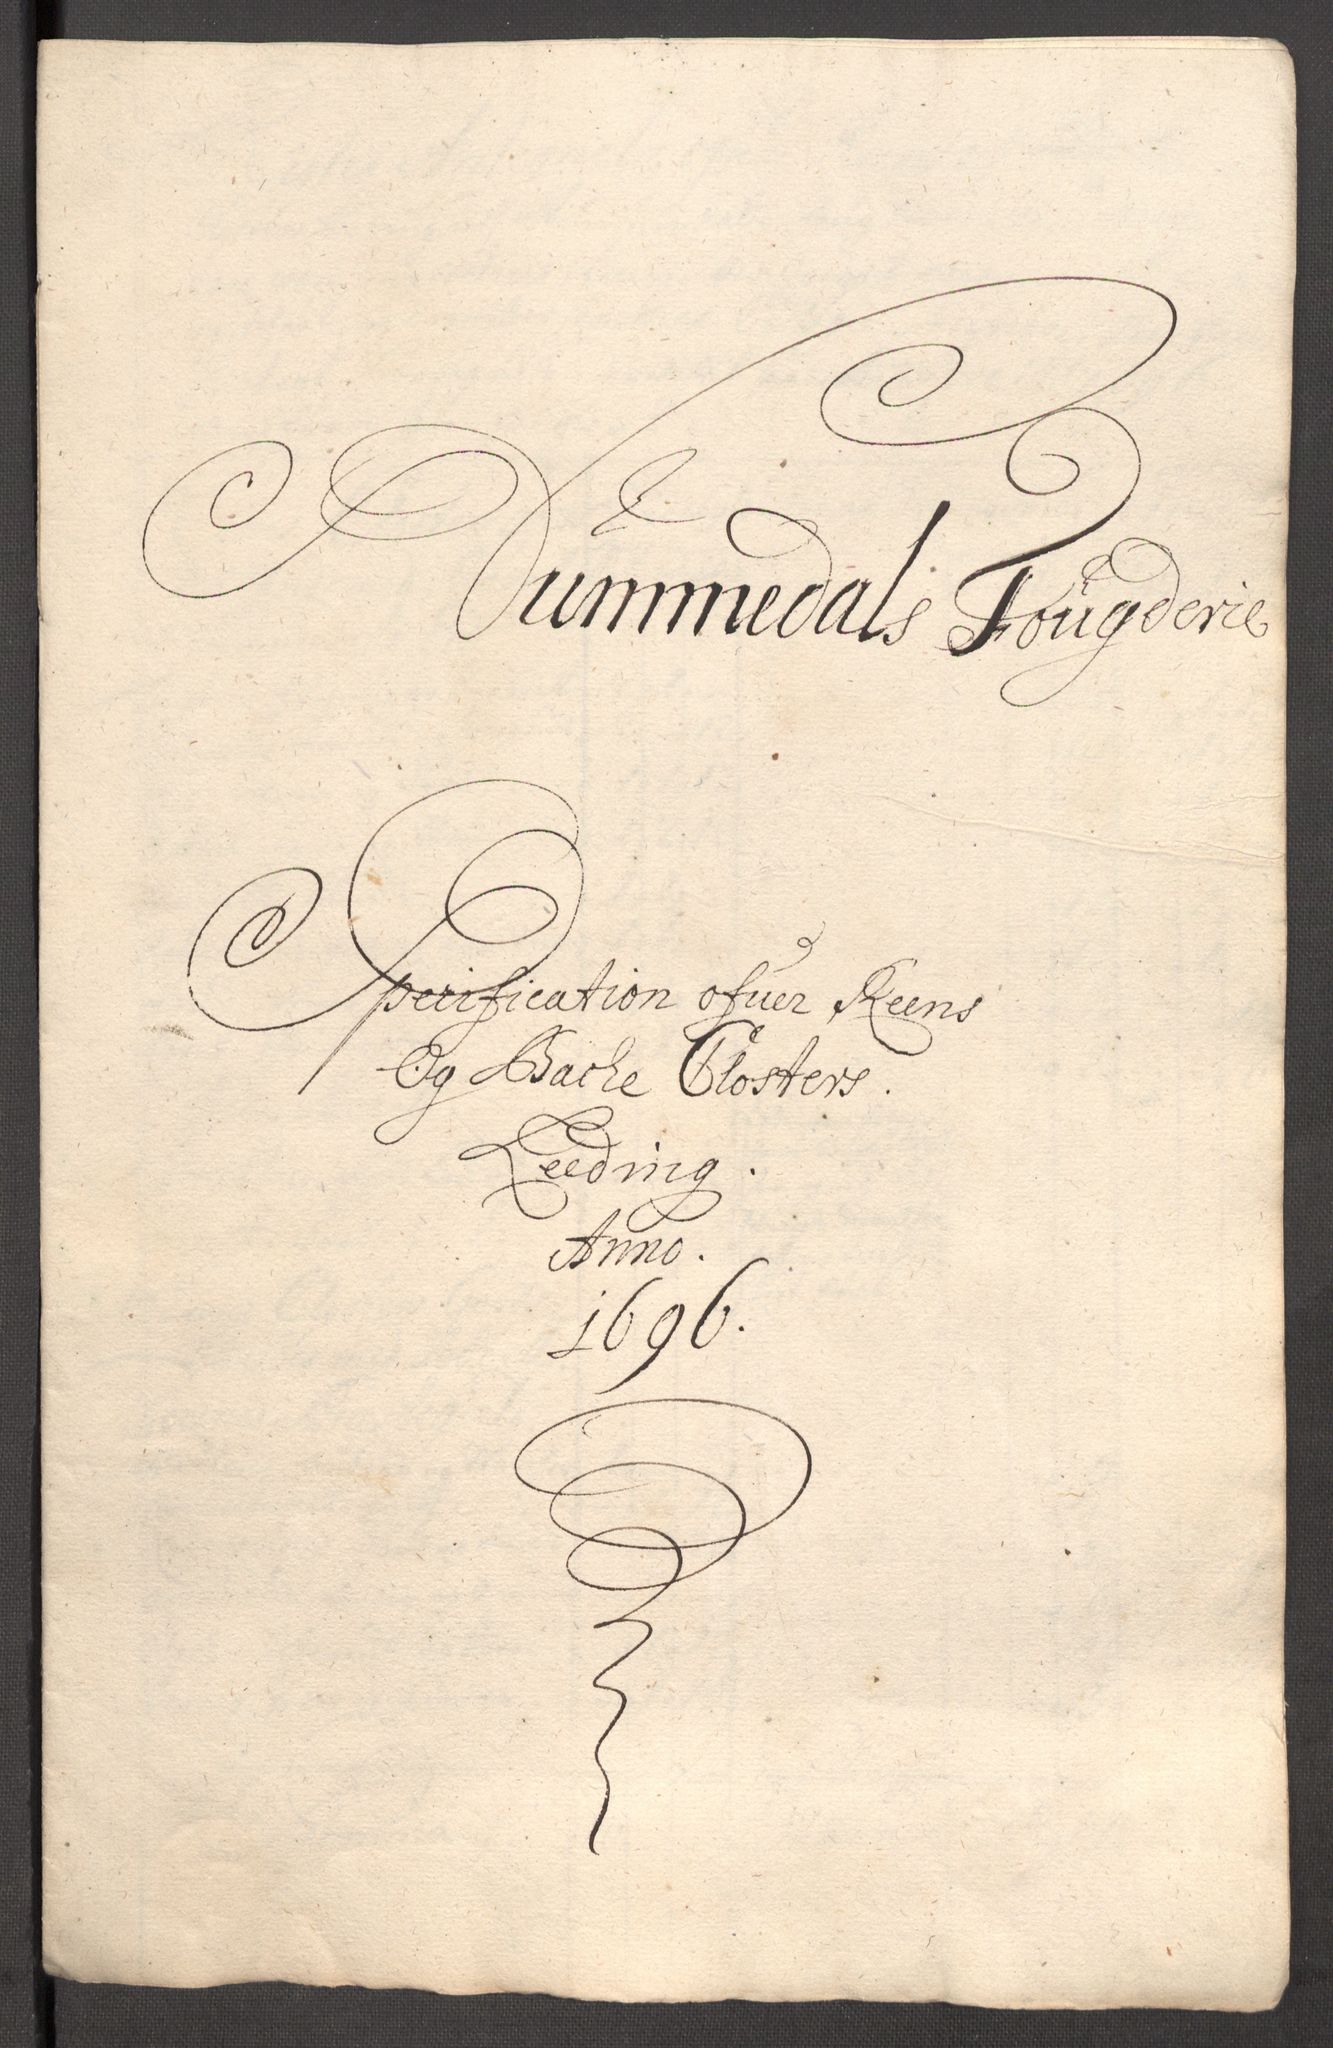 Nummedals Fougderie
Specification ofuer Reens
Og Bache Closters.
Leeding.
Anno.
1696.